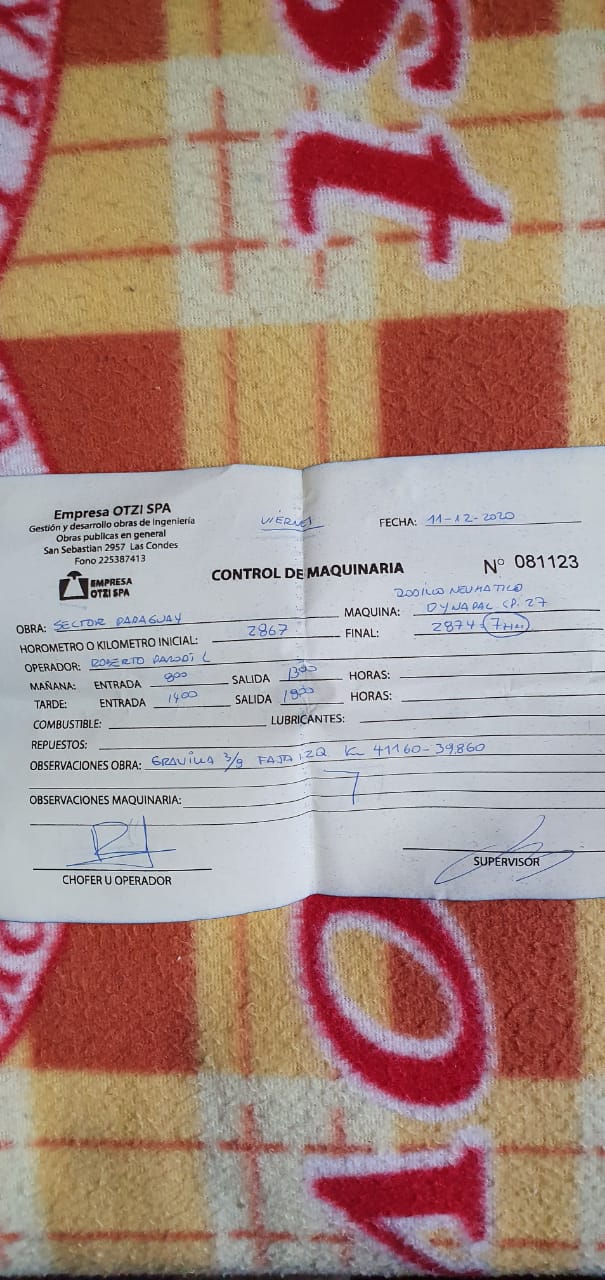 Empresa OTZI SPA
Gestión y desarrollo obras de Ingeniería
Obras publicas en general
San Sebastian 2957 Las Condes
Fono 225387413
EMPRESA
OTZI SPA
VIERNES
FECHA: 11-12-2020
CONTROL DE MAQUINARIA
Nº 081123
OBRA: SECTOR PARAGUAY
RODILLO NEUMATICO
MAQUINA: DYNAPAC CP. 27
HOROMETRO O KILOMETRO INICIAL: 2867
FINAL: 2874 7
OPERADOR: ROBERTO L
MAÑANA: ENTRADA 800 SALIDA 1300 HORAS:
TARDE: ENTRADA 1400 SALIDA 1800 HORAS:
COMBUSTIBLE: LUBRICANTES:
REPUESTOS:
OBSERVACIONES OBRA: GRAVILLA 3/8 FAJA IZQ K 41160-39.860
7
OBSERVACIONES MAQUINARIA:
CHOFER U OPERADOR
SUPERVISOR